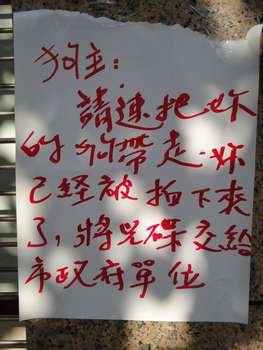 狗主：
請速把妳
的狗帶走．妳
己經被拍下來
了，將光碟交給
市政府單位